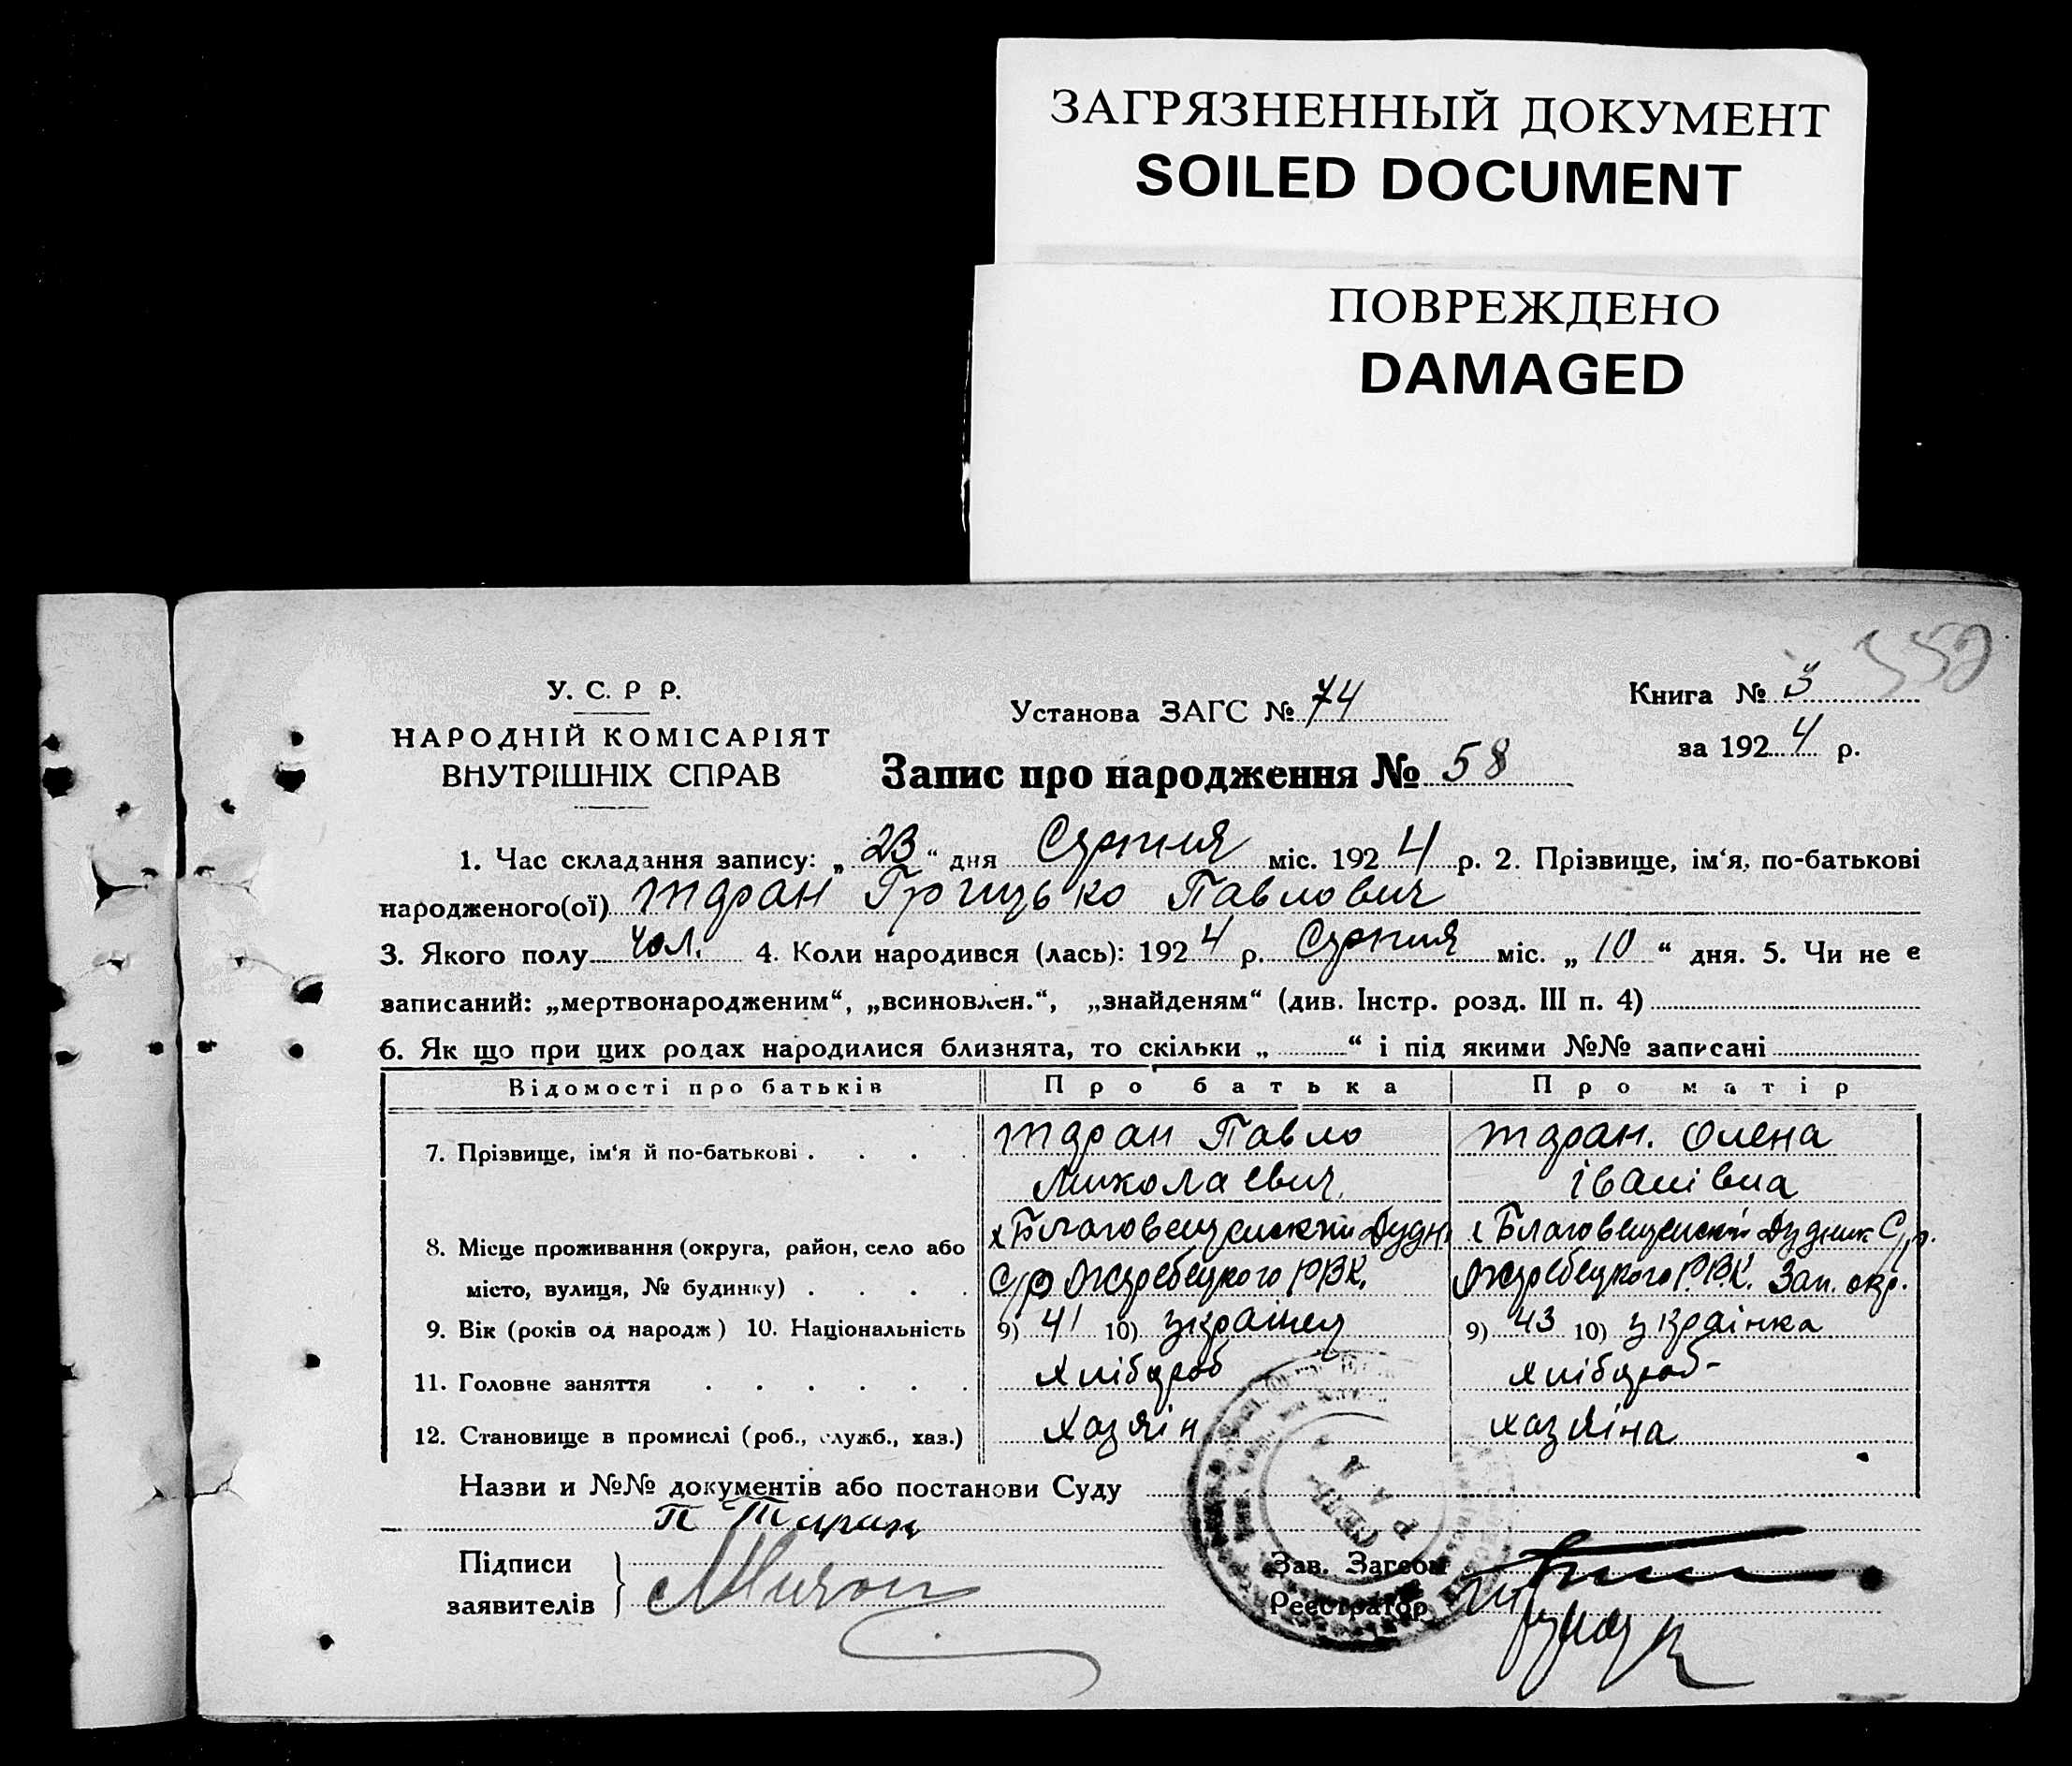 ЗАГРЯЗНЕННЫЙ ДОКУМЕНТ
SOILED DOCUMENT
ПОВРЕЖДЕНО
DAMAGED
352
У. С. Р Р.
НАРОДНІЙ КОМІСАРІЯТ
ВНУТРІШНІХ СПРАВ
Установа ЗАГС № 74
Книга № 3
за 1924 р.
Запис про народження № 58
1. Час складання запису: „23“ дня Серпня міс. 1924 р. 2. Прізвище, ім‘я, по-батькові
народженого(ої) Таран Грицько Павлович
3. Якого полу чол. 4. Коли народився (лась): 1924 р. Серпня міс. „10“ дня. 5. Чи не є
записаний: „мертвонародженим“, „всиновлен.“, „знайденям“ (див. Інстр. розд. III п. 4)
6. Як що при цих родах народилися близнята, то скільки „ “ і під якими №№ записані
Відомості про батьків Про батька Про матір
7. Прізвище, ім‘я й по-батькові Таран Павло Таран. Олена
Миколаевич. Іванівна
8. Місце проживання (округа, район, село або х Благовещенский Дудн. х Благовещенский Дудник С/р.
місто, вулиця, № будинку) С/р Жеребецкого РВК. Жеребецкого Р.В.К. Зап. окр.
9. Вік (років од народж) 10. Національність 9) 41 10) Украінец 9) 43 10) украінка
11. Головне заняття хлібороб хлібороб-
12. Становище в промислі (роб., служб., хаз.) Хазяін хазяіна
Назви и №№ документів або постанови Суду
П Таран
Підписи
заявителів
Зав. Загсом
Реєстратор